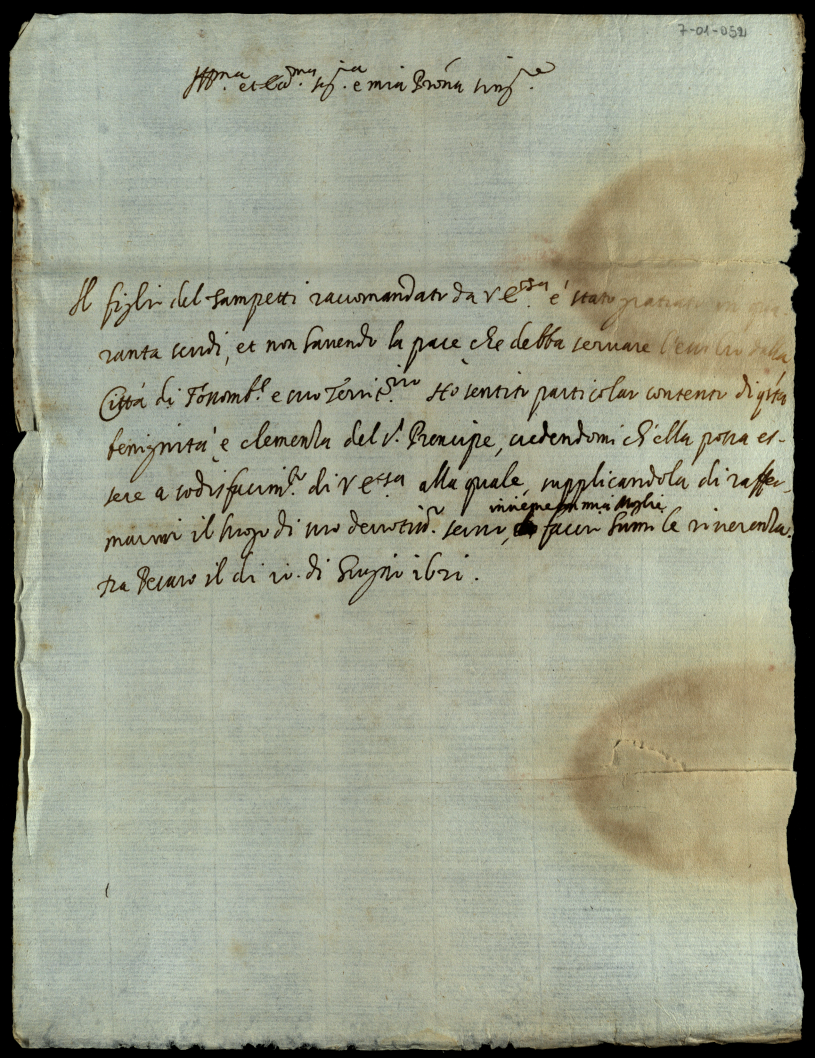 7-01-052
Ill.ma et Ecc.ma Sig.ra e mia Prõna sing.e
Il figlio del Sampetti raccomandato da V Ecc.za é stato gratiato in qua-
ranta scudi, et non havendo la pace che debba servare l'essilio dalla
Città di Fossomb.e e suo Territ.rio Ho sentito particolar contento di q̃sta
benignità e clemenza del S.r Prencipe, credendomi ch'ella possa es-
sere a sodisfacim.to di V Ecc.za alla quale, supplicandola di raffer-
insieme con mia Moglie
marmi il luogo di suo devotiss.o servo, faccio humile riverenza.
Da Pesaro il di io. di Giugno i621.